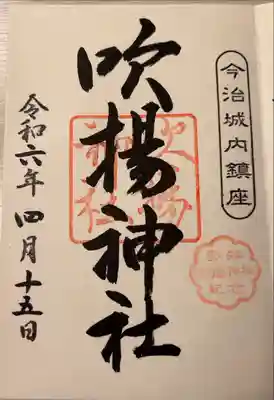 今治城内鎮座
吹揚神社
令和六年 四月十五日